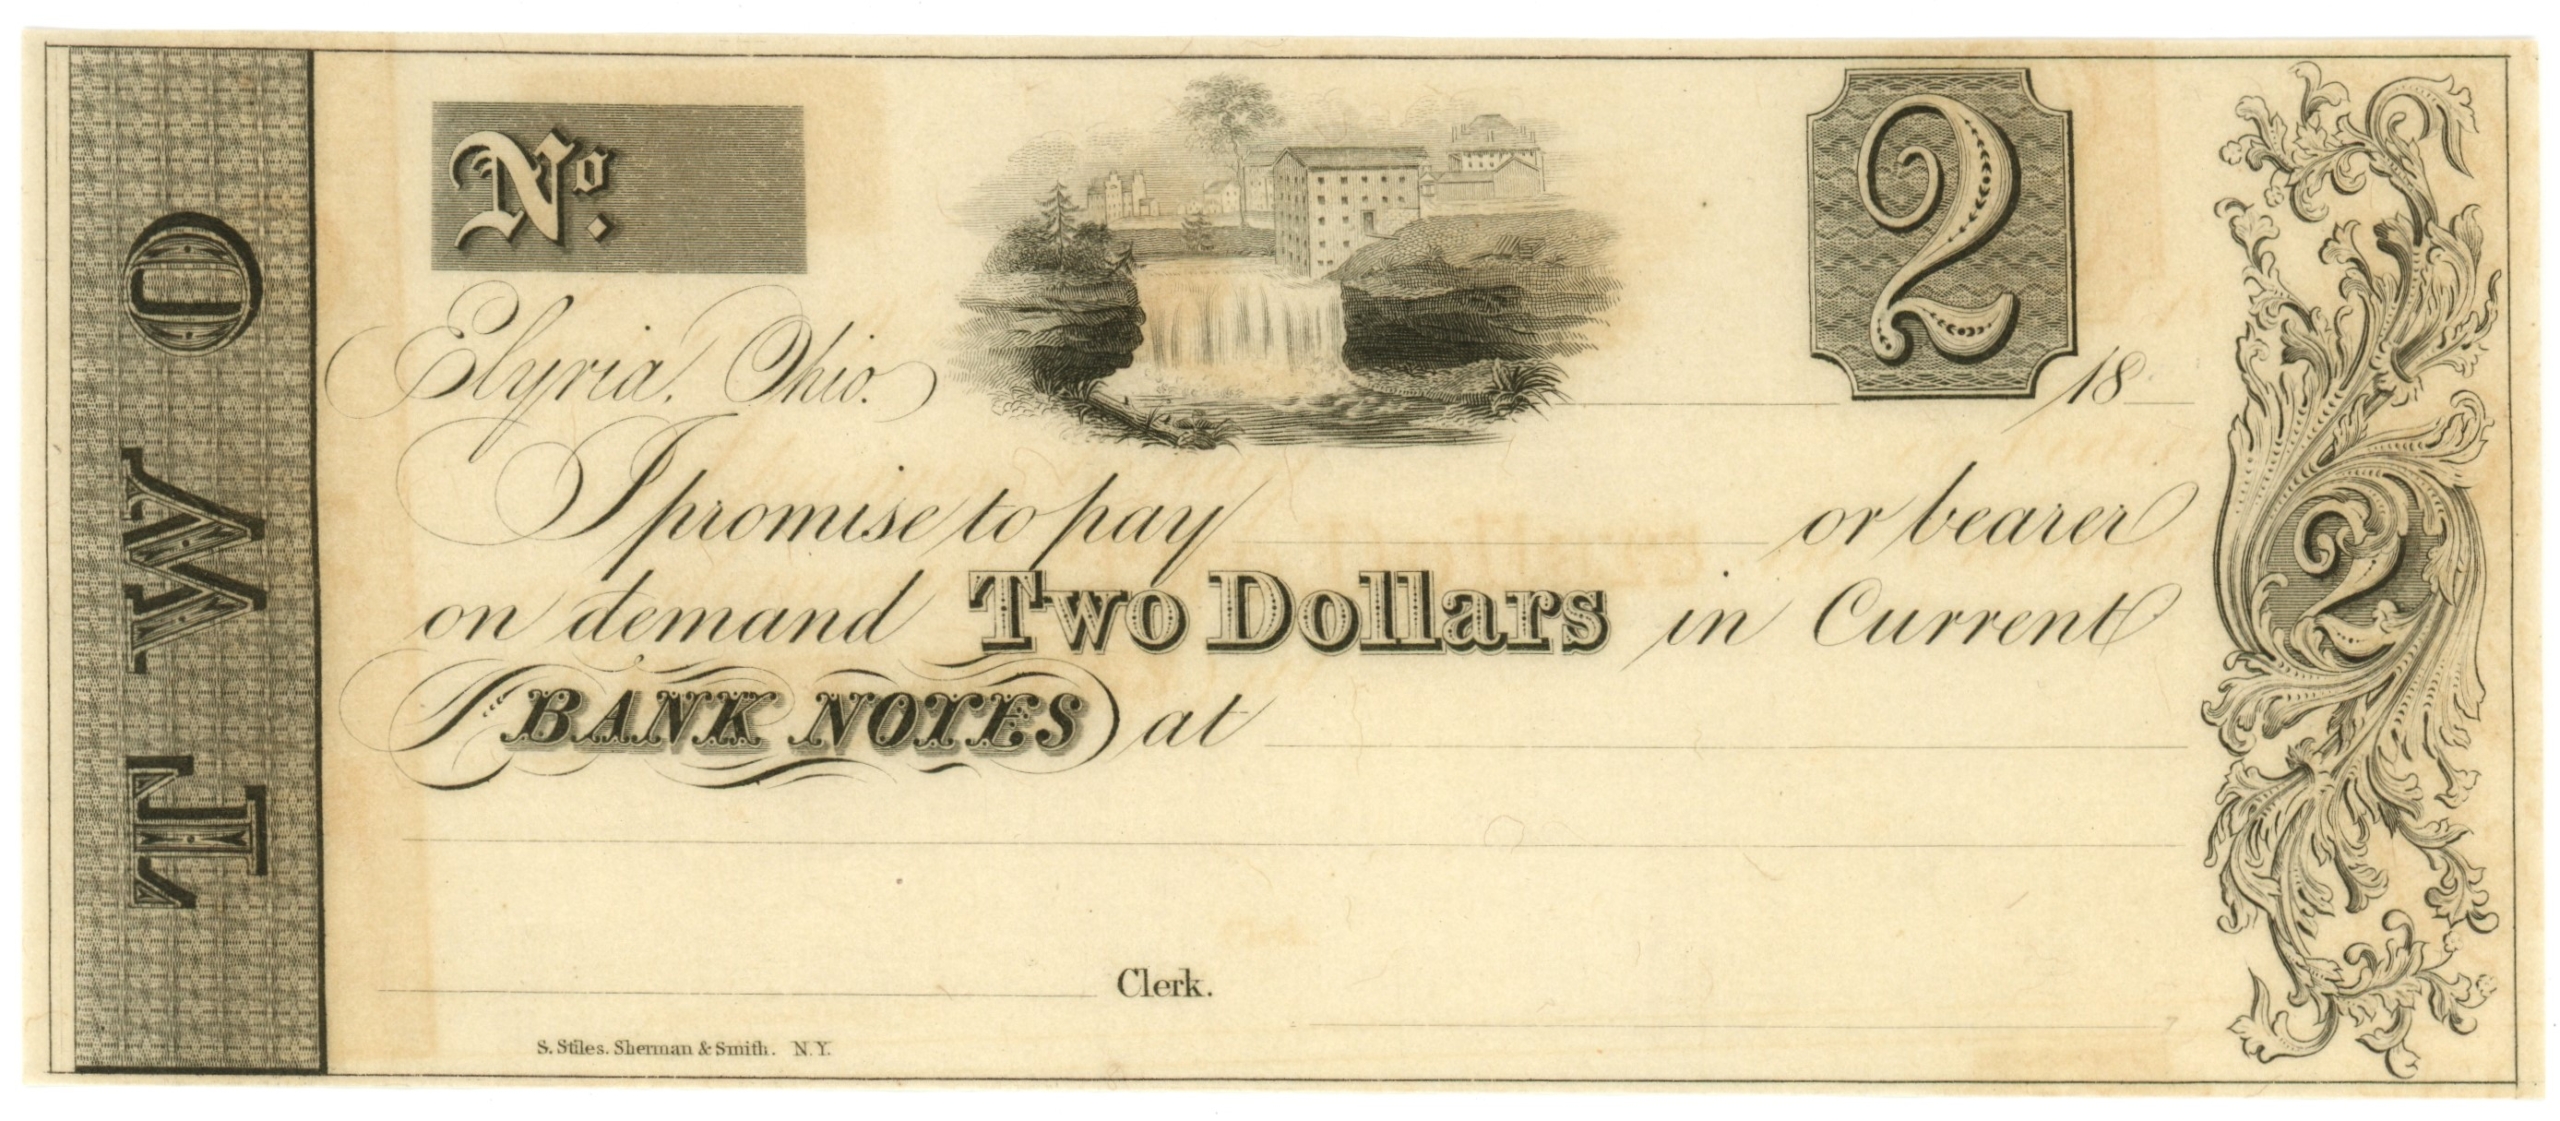 TWO
No.
2
Elyria, Ohio. 18
I promise to pay or bearer
on demand Two Dollars in Current
BANK NOTES at
2
Clerk.
S. Stiles. Sherman & Smith. N.Y.